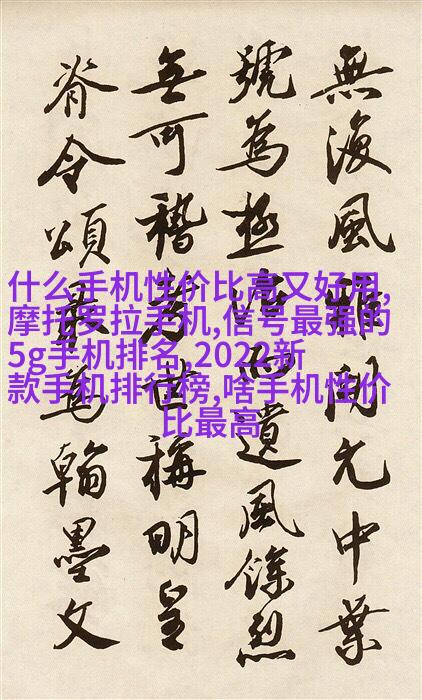 無復風雅開元中葉
號為極盛而遺風餘烈
無可稽考稱明皇
脊令頌最為翰墨文
什么手机性价比高又好用,
摩托罗拉手机,信号最强的
5g手机排名,2022新
款手机排行榜,啥手机性价
比最高